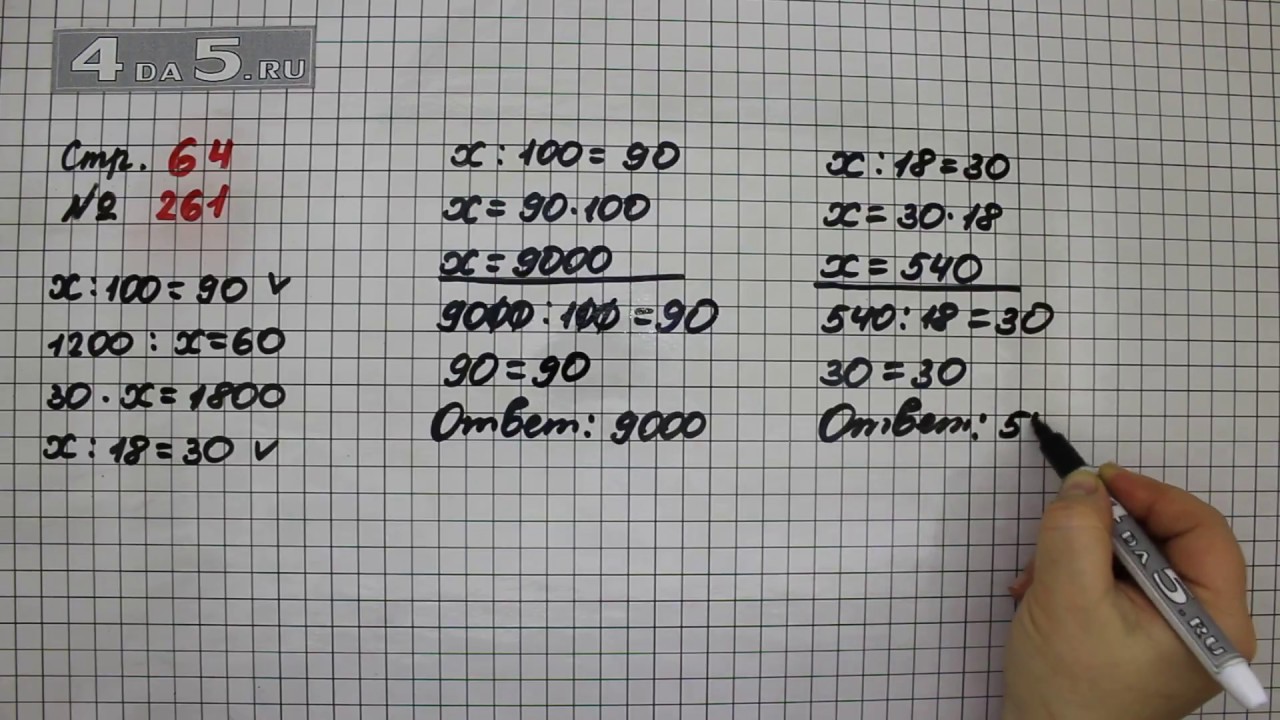 4DA5.RU
Стр. 64
№ 261
x : 100 = 90 ✓
1200 : x = 60
30 · x = 1800
x : 18 = 30 ✓
x : 100 = 90
x = 90 · 100
x = 9000
9000 : 100 = 90
90 = 90
Ответ: 9000
x : 18 = 30
x = 30 · 18
x = 540
540 : 18 = 30
30 = 30
Ответ: 54
DA5.RU